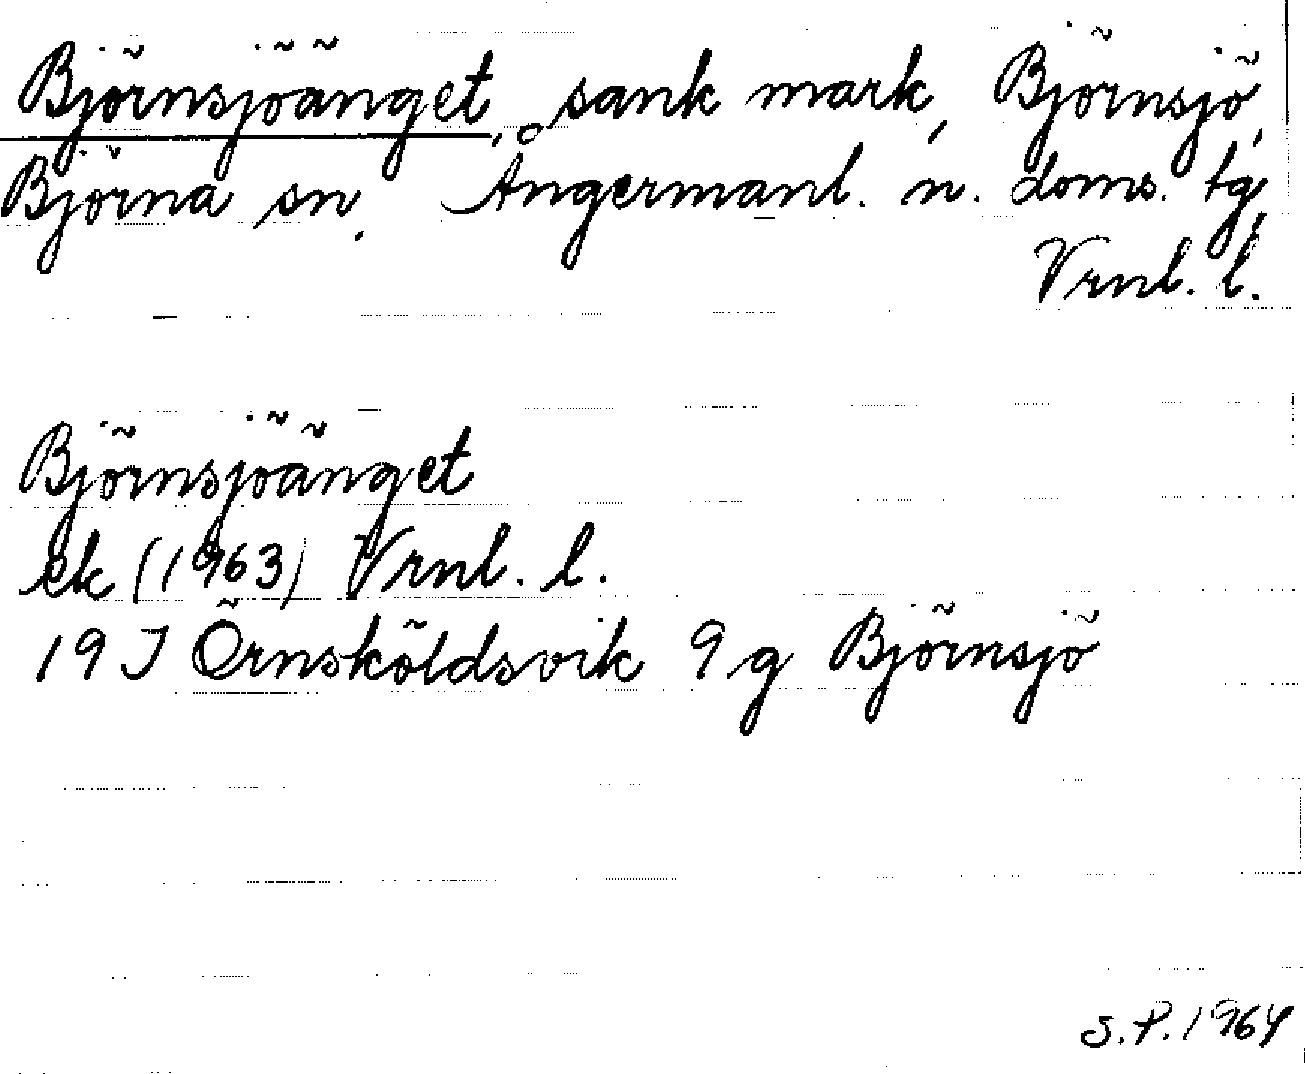 Björnsjöänget, sank mark, Björnsjö,
Björna sn, Ångermanl. n. doms. tg,
Vrnl. l.
Björnsjöänget
ek (1963) Vrnl. l.
19 J Örnsköldsvik 9 g Björnsjö
S.P. 1964